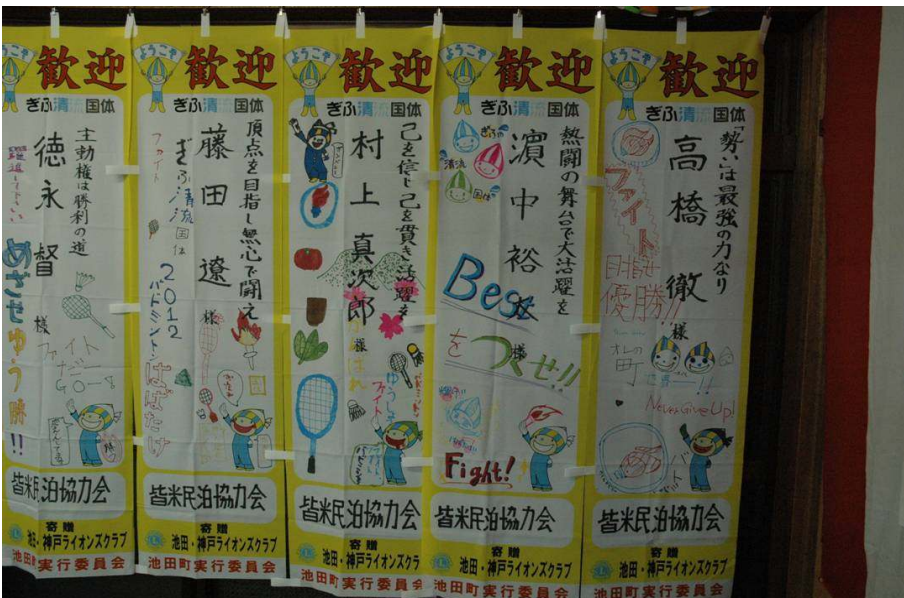 ようこそ
歓迎
ぎふ清流国体
主動権は勝利の道
徳永 督 様
めざせゆう勝!!
ファイトだー
GO-8
皆米民泊協力会
寄贈
池田・神戸ライオンズクラブ
池田町実行委員会
ようこそ
歓迎
ぎふ清流国体
頂点を目指し無心で闘え
藤田 遼 様
ファイト
ぎふ清流国体
2012
バドミントン
はばたけ
皆米民泊協力会
寄贈
池田・神戸ライオンズクラブ
池田町実行委員会
ようこそ
歓迎
ぎふ清流国体
己を信じ己を貫き活躍を
村上 真次郎 様
がんばれ
ゆうしょう
ファイト
皆米民泊協力会
寄贈
池田・神戸ライオンズクラブ
池田町実行委員会
ようこそ
歓迎
ぎふ清流国体
熱闘の舞台で大活躍を
濵中 裕 様
ぎふ
清流
国体
Best
をつくせ!!
Fight!
皆米民泊協力会
寄贈
池田・神戸ライオンズクラブ
池田町実行委員会
ようこそ
歓迎
ぎふ清流国体
「勢い」は最強の力なり
高橋 徹 様
ファイト
目指せ
優勝!!
町
世界一!!
Never Give Up!
皆米民泊協力会
寄贈
池田・神戸ライオンズクラブ
池田町実行委員会